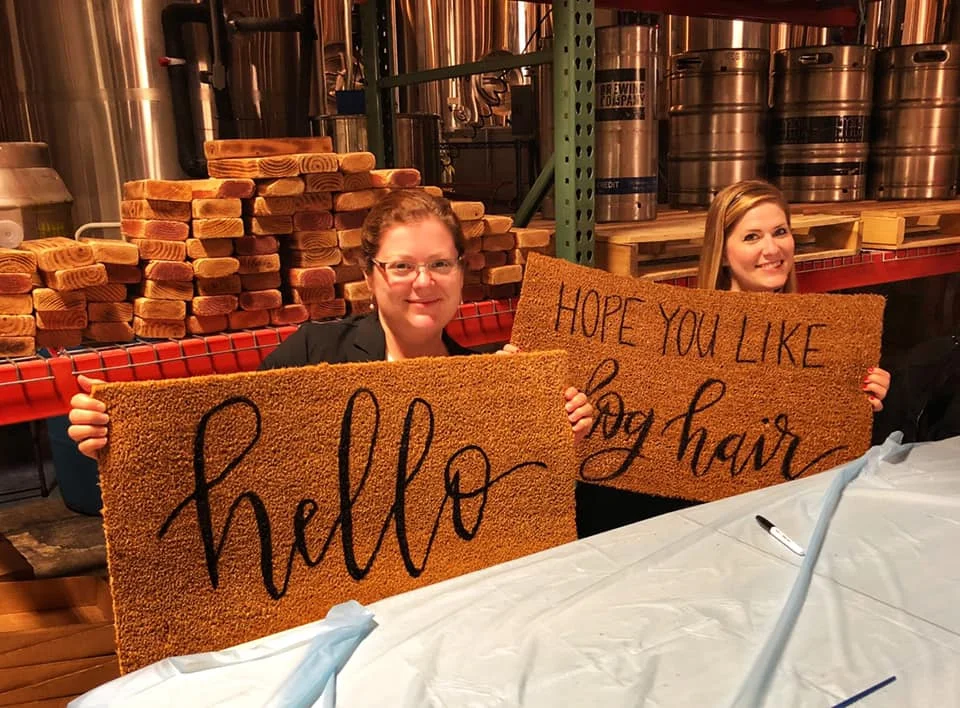 hello
HOPE YOU LIKE
dog hair
BREWING
COMPANY
CREDIT